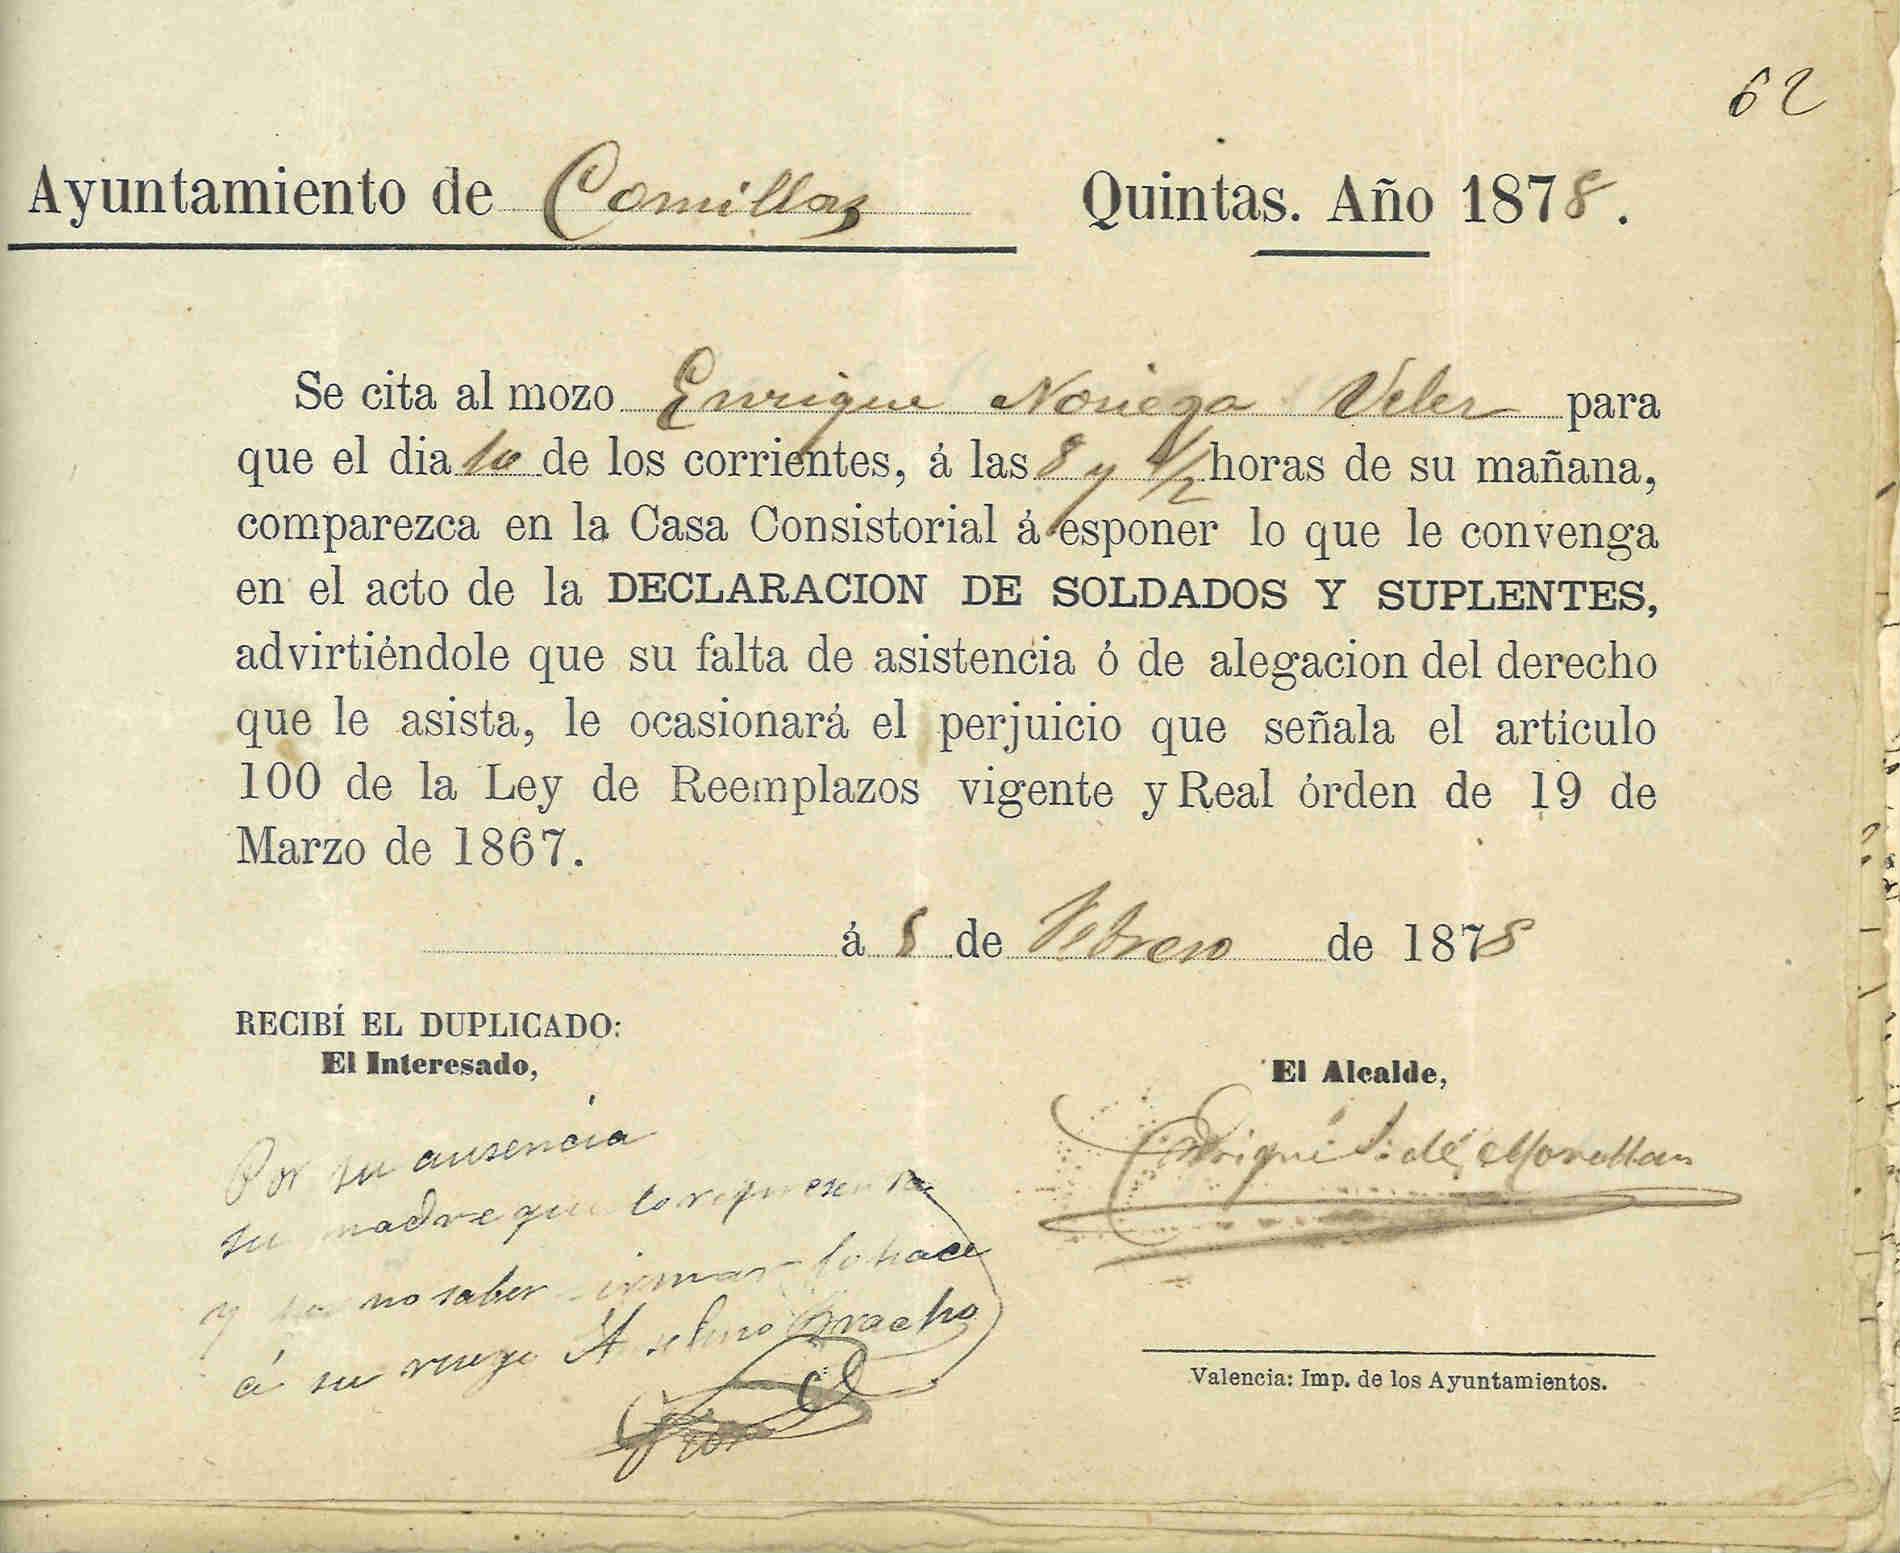 62
Ayuntamiento de Comillas Quintas. Año 1878.
Se cita al mozo Enrique Noriega Velez para
que el dia 10 de los corrientes, á las 8 y 1/2 horas de su mañana,
comparezca en la Casa Consistorial á esponer lo que le convenga
en el acto de la DECLARACION DE SOLDADOS Y SUPLENTES,
advirtiéndole que su falta de asistencia ó de alegacion del derecho
que le asista, le ocasionará el perjuicio que señala el artículo
100 de la Ley de Reemplazos vigente y Real órden de 19 de
Marzo de 1867.
á 8 de Febrero de 1878
RECIBÍ EL DUPLICADO:
El Interesado,
El Alcalde,
Por su ausencia
su madre que lo representa
y por no saber firmar lo hace
á su ruego Anselmo Bracho
Enrique de Movellan
Valencia: Imp. de los Ayuntamientos.